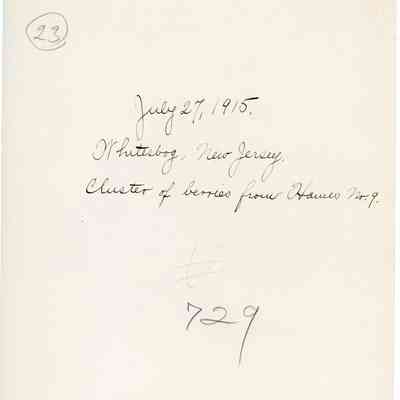 23
July 27, 1915.
Whitesbog, New Jersey.
Cluster of berries from Hanes No. 9.
#
729